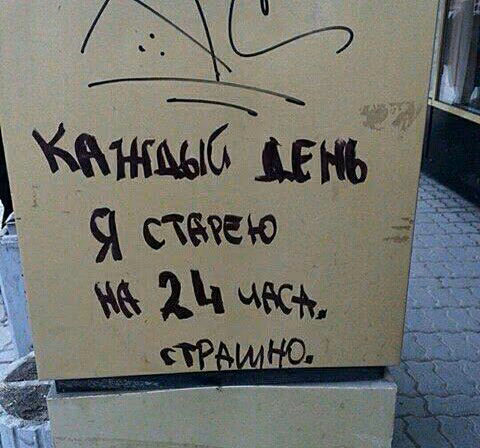 КАЖДЫЙ ДЕНЬ
Я СТАРЕЮ
НА 24 ЧАСА.
СТРАШНО.